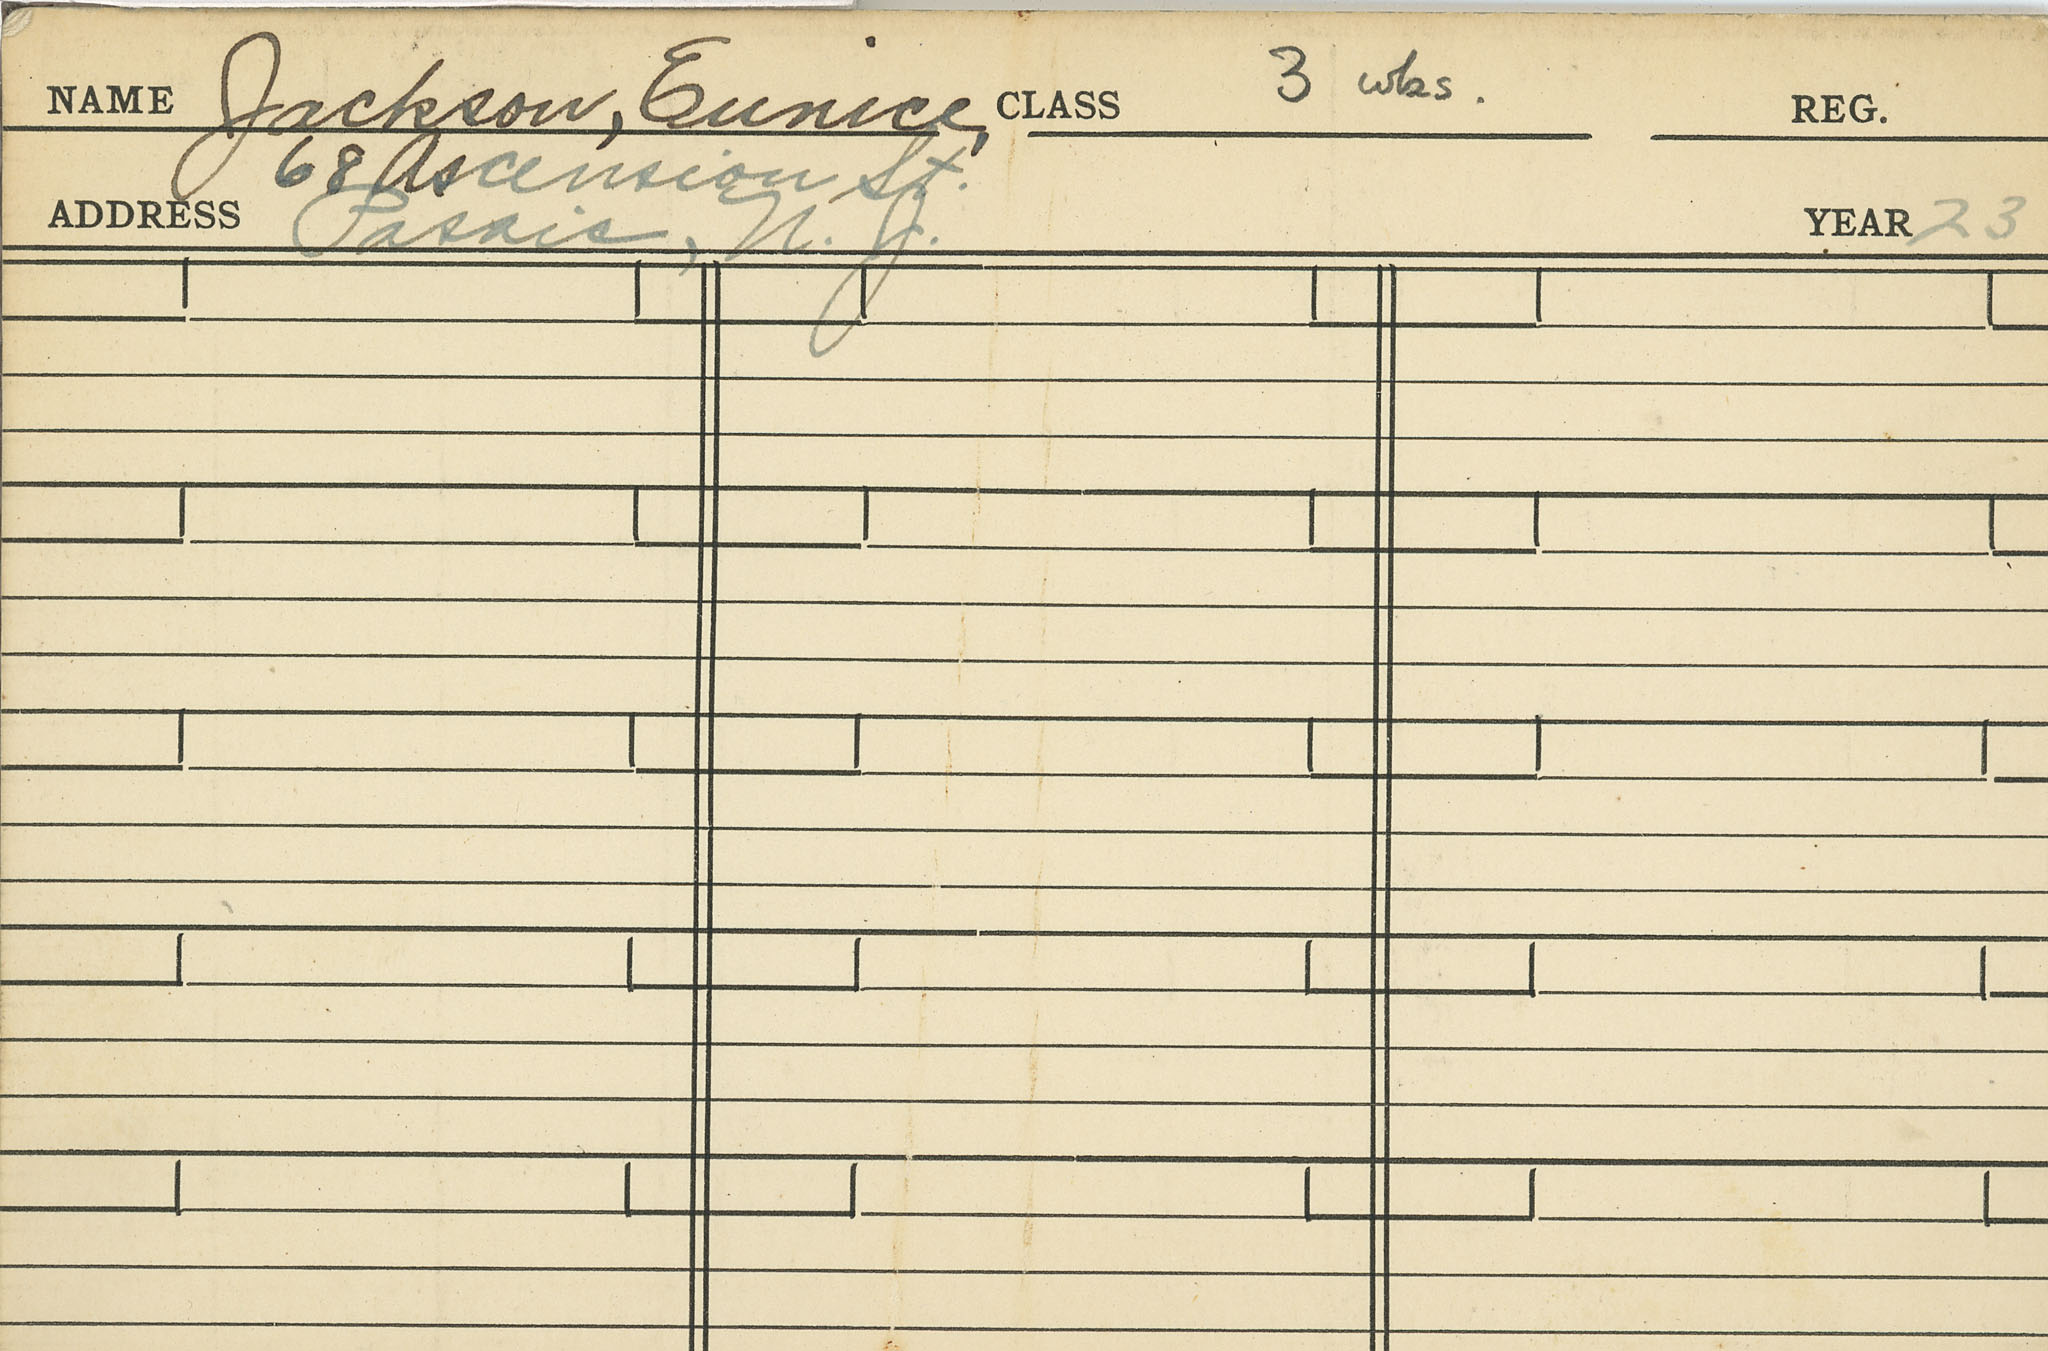 NAME Jackson, Eunice, CLASS 3 wks. REG.
68 Ascension St.
ADDRESS Passaic, N. J. YEAR 23